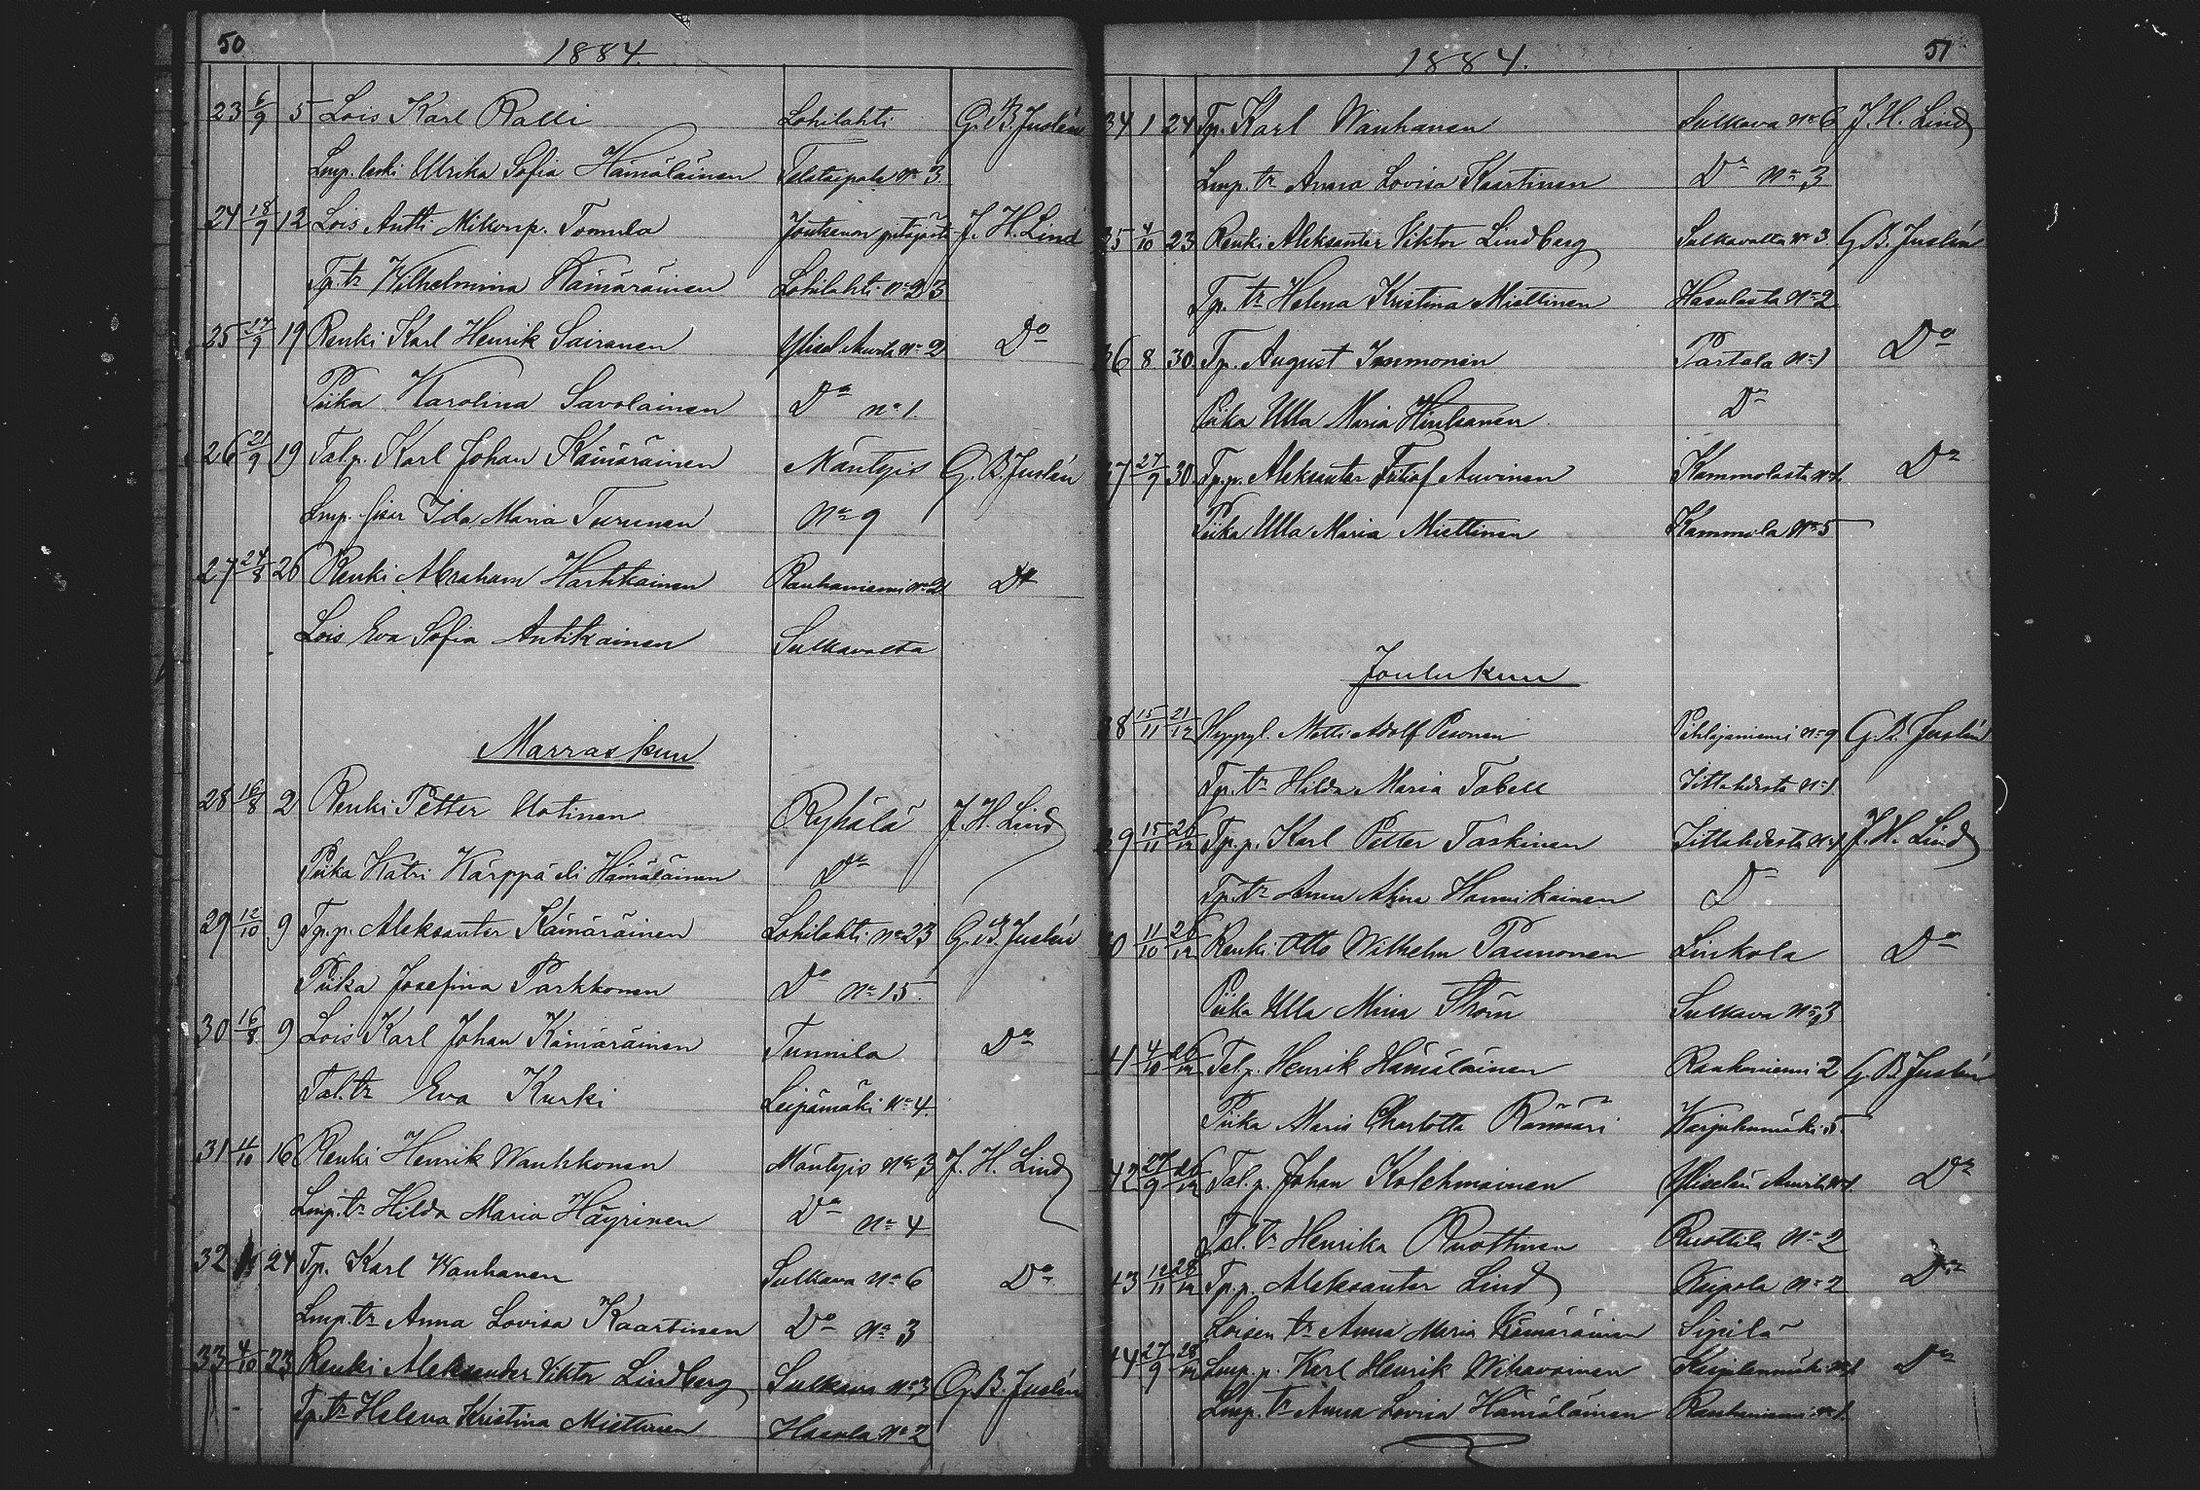 50
1884.
23 6/9 5 Lois Karl Ralli Lohilahti G. B. Juslén
Lmp. leski Ulrika Sofia Hämäläinen Telataipale No 3
24 18/9 12 Lois Antti Tomula J. H. Lind
Tp. tr Wilhelmina Kämäräinen Lohilahti No 23
25 17/9 19 Renki Karl Henrik Sairanen No 2 Do
Piika Karolina Savolainen Do No 1.
26 21/9 19 Tal.p. Karl Johan Kämäräinen Mäntyis G. B. Juslén
Lmp. sisar Ida Maria Turunen No 9
27 24/8 26 Renki Abraham Harkkainen Rauhaniemi No 2 Do
Lois Eva Sofia Antikainen Sulkavalta
Marraskuu
28 16/8 2 Renki Petter Uotinen Ryhälä J. H. Lind
Piika Katri Kärppä eli Hämäläinen Do
29 12/10 9 Tp.p. Aleksanter Kämäräinen Lohilahti No 23 G. B. Juslén
Piika Josefina Parkkonen Do No 15.
30 16/8 9 Lois Karl Johan Kämäräinen Tunnila Do
Tal. tr Eva Kurki Leipämäki No 4.
31 4/10 16 Renki Henrik Wauhkonen Mäntyis No 3 J. H. Lind
Lmp. tr Hilda Maria Häyrinen Do No 4
32 24 Tp. Karl Wauhanen Sulkava No 6 Do
Lmp. tr Anna Lovisa Kaartinen Do No 3
33 4/10 23 Renki Aleksander Viktor Lindberg Sulkava No 3 G. B. Juslén
Tp. tr Helena Kristina Miettinen Hasula No 2
1884.
51
34 1 24 Tp. Karl Wauhanen Sulkava No 6 J. H. Lind
Lmp. tr Anna Lovisa Kaartinen Do No 3
35 4/10 23 Renki Aleksanter Viktor Lindberg Sulkavalta No 3 G. B. Juslén
Tp. tr Helena Kristina Miettinen Hasulasta No 2
36 8 30. Tp. August Immonen Partala No 1 Do
Piika Ulla Maria Hirvksanen Do
37 27/9 30. Tp.p. Aleksanter Fritiof Auvinen Kammolasta No 1. Do
Piika Ulla Maria Miettinen Kammola No 5
Joulukuu
38 15/11 21/12 Matti Adolf Pesonen Pihlajaniemi No 9 G. B. Juslén
Tp. tr Hilda Maria Tabell Iitlahdesta No 1
39 15/11 26/12 Tp.p. Karl Petter Taskinen Iitlahdesta No 1 J. H. Lind
Tp. tr Anna Alina Hannikainen Do
40 11/10 26/12 Renki Otto Wilhelm Paunonen Linkola Do
Piika Ulla Mina Ström Sulkava No 3
41 4/10 26/12 Tal.p. Henrik Hämäläinen Rauhaniemi 2 G. B. Juslén
Piika Maria Charlotta Rännäri Karjulanmäki 5.
42 27/9 26/12 Tal. p. Johan Kolehmainen No 1. Do
Tal. tr Henrika Ruottinen Ruottila No 2
43 12/11 28/12 Tp.p. Aleksanter Lind Kaipola No 2 Do
Loisen tr Anna Maria Kämäräinen Sipilä
44 27/9 28/12 Lmp. p. Karl Henrik Wihavainen Karjulanmäki No 1. Do
Lmp. tr Anna Lovisa Hämäläinen Rauhaniemi No 1.